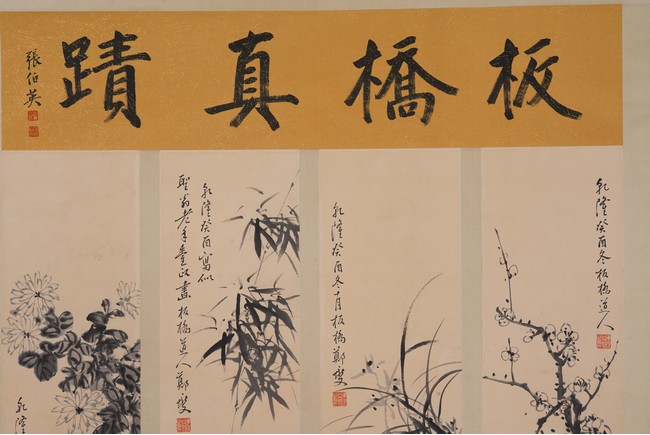 板橋真蹟
張伯英
乾隆癸酉冬板橋道人
乾隆癸酉冬月板橋鄭燮
乾隆癸酉寫似
聖翁老年臺政畫板橋道人鄭燮
乾隆